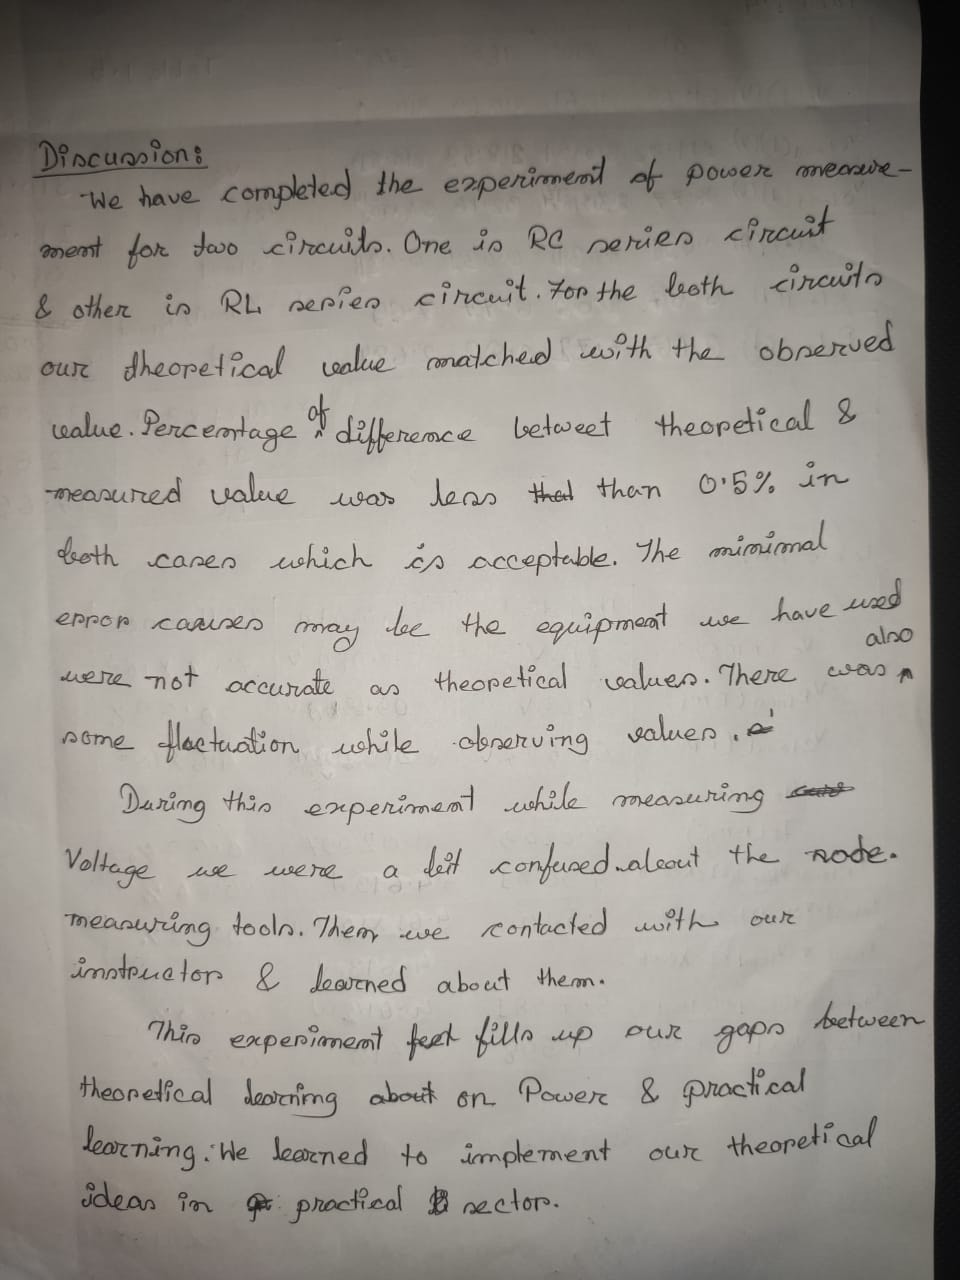 Discussion:
We have completed the experiment of power measure-
ment for two circuits. One is RC series circuit
& other is RL series circuit. For the both circuits
our theoretical value matched with the observed
value. Percentage of difference betweet theoretical &
measured value was less that than 0.5% in
both cases which is acceptable. The minimal
error causes may be the equipment we have used
were not accurate as theoretical values. There was also
some flactuation while observing values.
During this experiment while measuring
Voltage we were a bit confused about the node.
measuring tools. Then we contacted with our
instructor & learned about them.
This experiment feet fills up our gaps between
theoretical learning about on Power & practical
learning. We learned to implement our theoretical
ideas in practical sector.